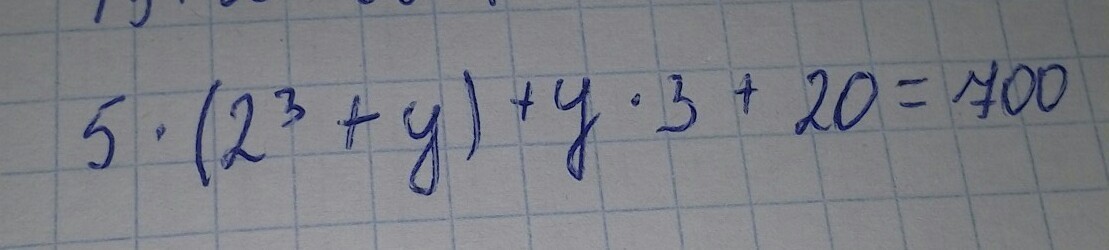 5 · (2³ + y) + y · 3 + 20 = 700